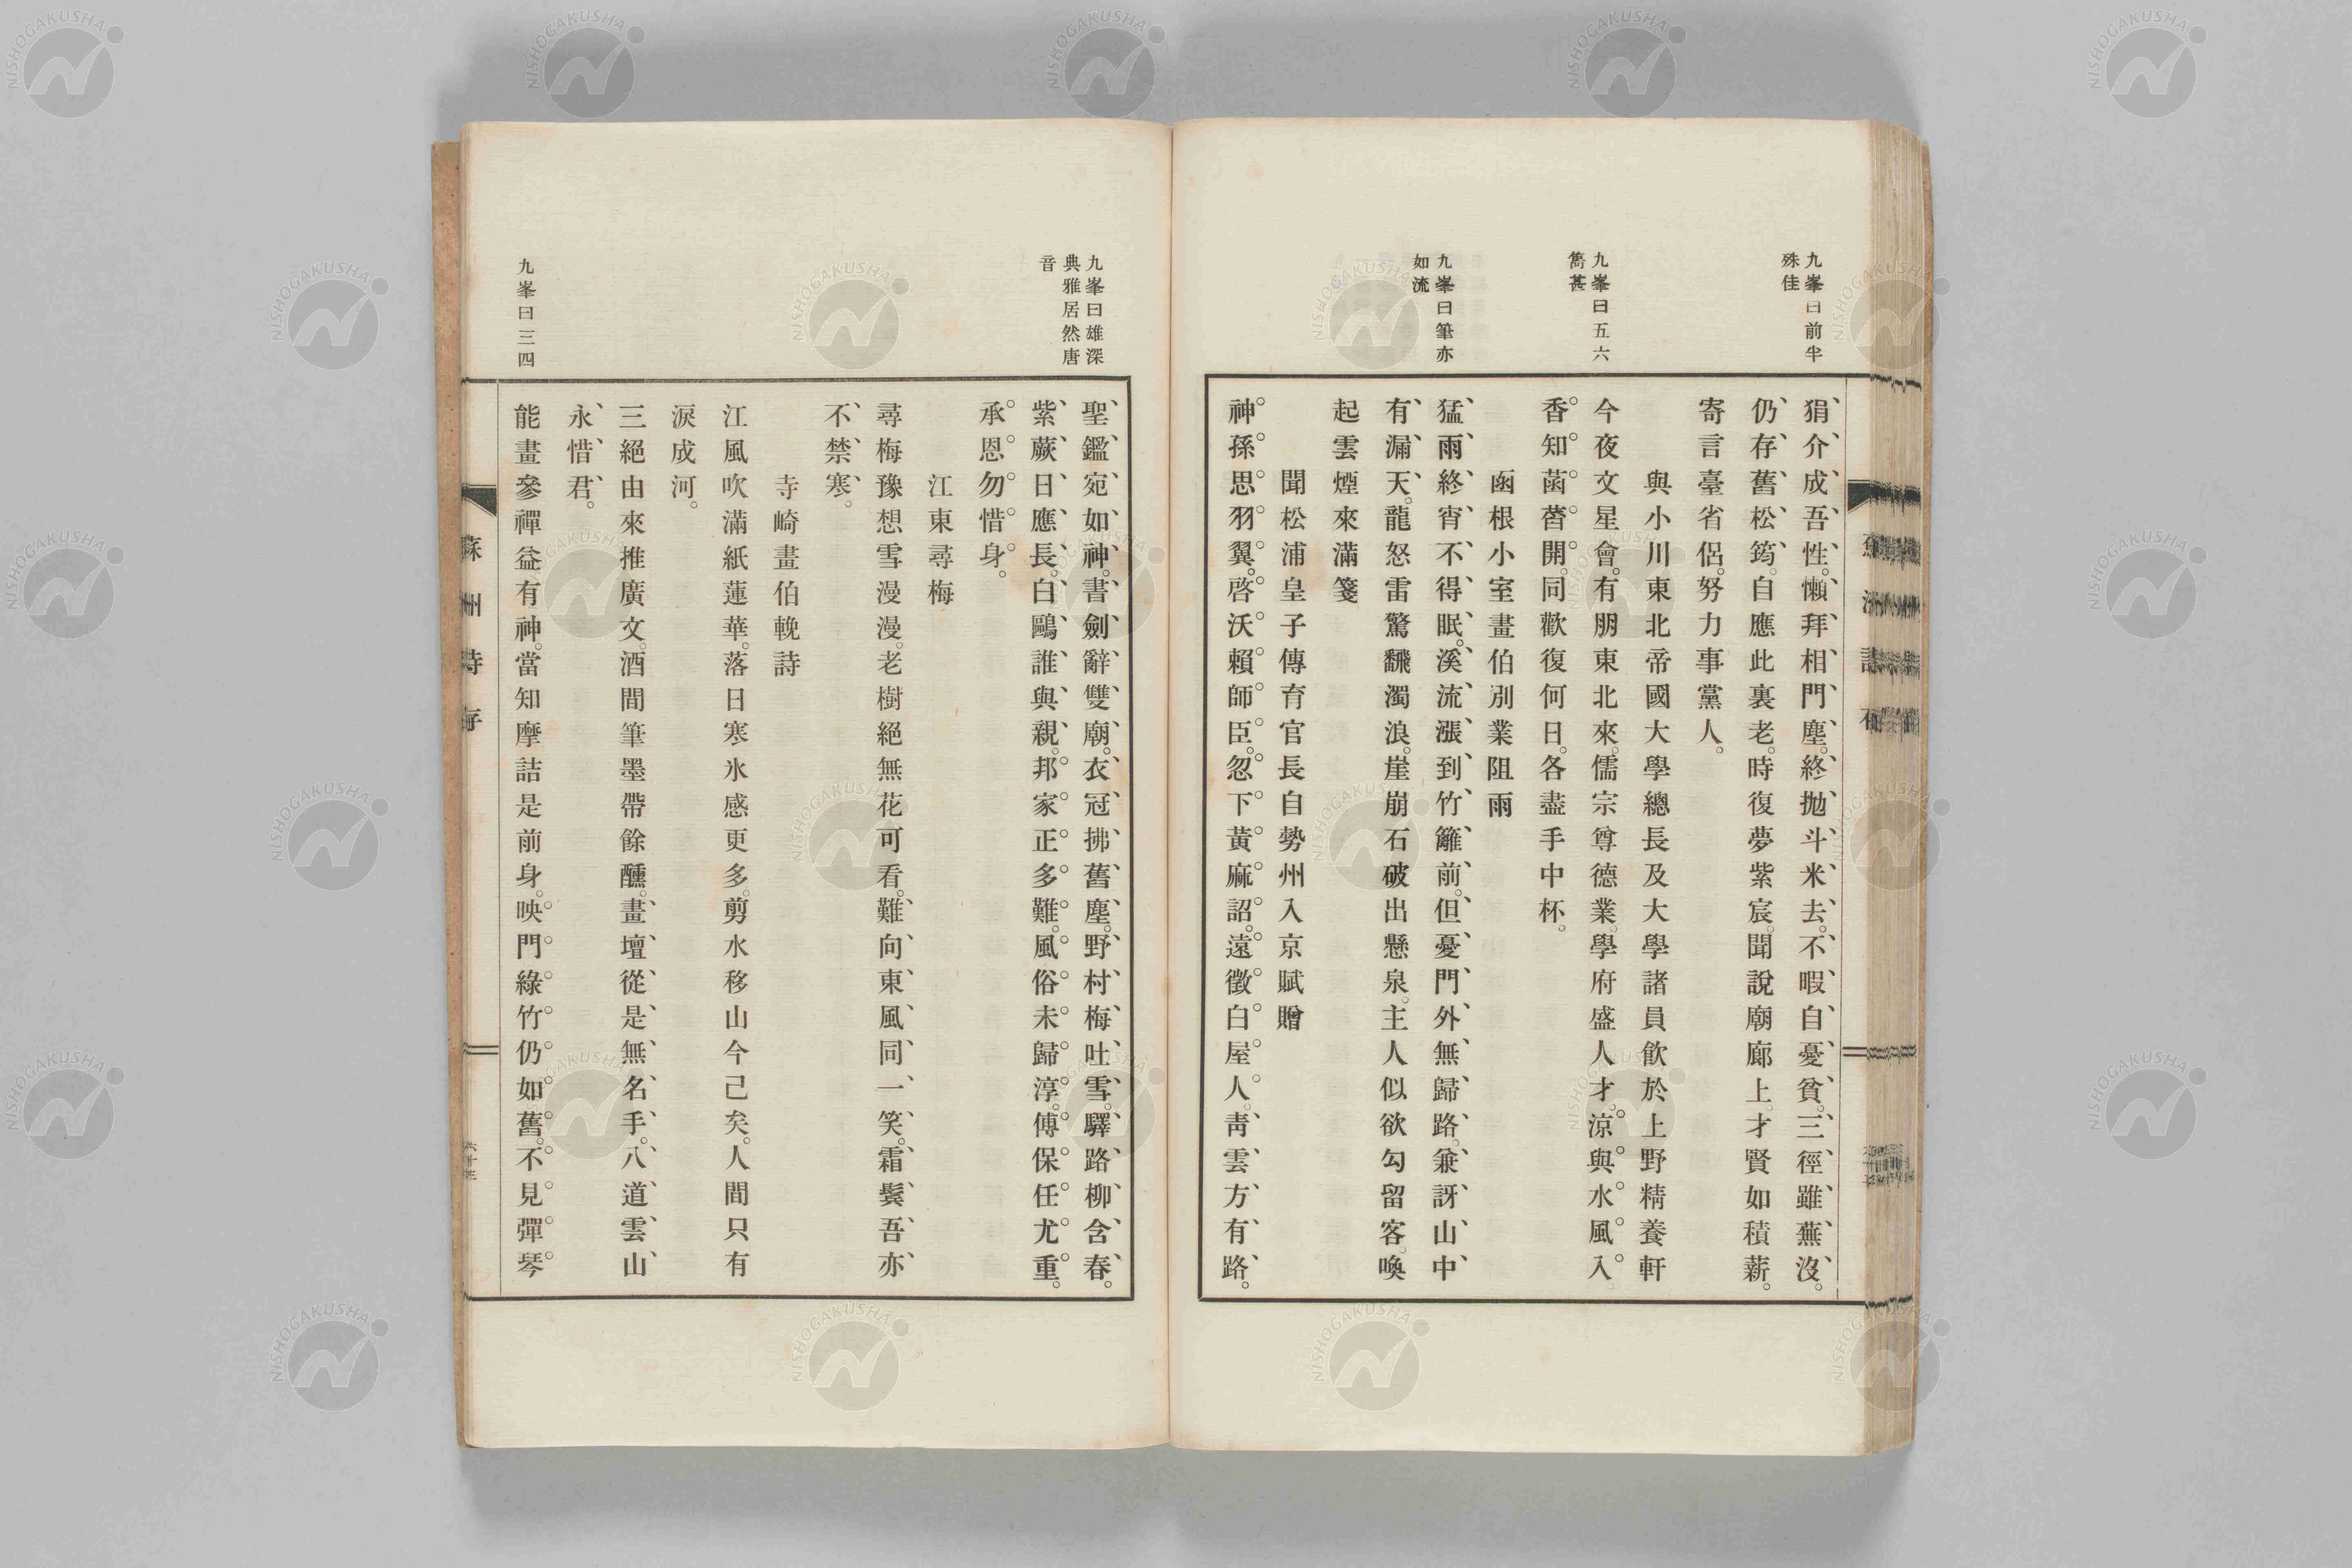 九峯曰前半
殊佳
九峯曰五六
雋甚
九峯曰筆亦
如流
狷介成吾性。懶拜相門塵。終拋斗米去。不暇自憂貧。三徑雖蕪沒。
仍存舊松筠。自應此裏老。時復夢紫宸。聞說廟廊上。才賢如積薪。
寄言臺省侶。努力事黨人。
與小川東北帝國大學總長及大學諸員飲於上野精養軒
今夜文星會。有朋東北來。儒宗尊德業。學府盛人才。涼與水風入。
香知菡萏開。同歡復何日。各盡手中杯。
函根小室畫伯別業阻雨
猛雨終宵不得眠。溪流漲到竹籬前。但憂門外無歸路。兼訝山中
有漏天。龍怒雷驚飜濁浪。崖崩石破出懸泉。主人似欲勾留客。喚
起雲煙來滿箋
聞松浦皇子傳育官長自勢州入京賦贈
神孫思羽翼。啓沃賴師臣。忽下黃麻詔。遠徵白屋人。靑雲方有路。
九峯曰雄深
典雅居然唐
音
九峯曰三四
聖鑑宛如神。書劍辭雙廟。衣冠拂舊塵。野村梅吐雪。驛路柳含春。
紫蕨日應長。白鷗誰與親。邦家正多難。風俗未歸淳。傅保任尤重。
承恩勿惜身。
江東尋梅
尋梅豫想雪漫漫。老樹絕無花可看。難向東風同一笑。霜鬢吾亦
不禁寒。
寺崎畫伯輓詩
江風吹滿紙蓮華。落日寒氷感更多。剪水移山今已矣。人間只有
淚成河。
三絕由來推廣文。酒間筆墨帶餘醺。畫壇從是無名手。八道雲山
永惜君。
能畫參禪益有神。當知摩詰是前身。映門綠竹仍如舊。不見彈琴